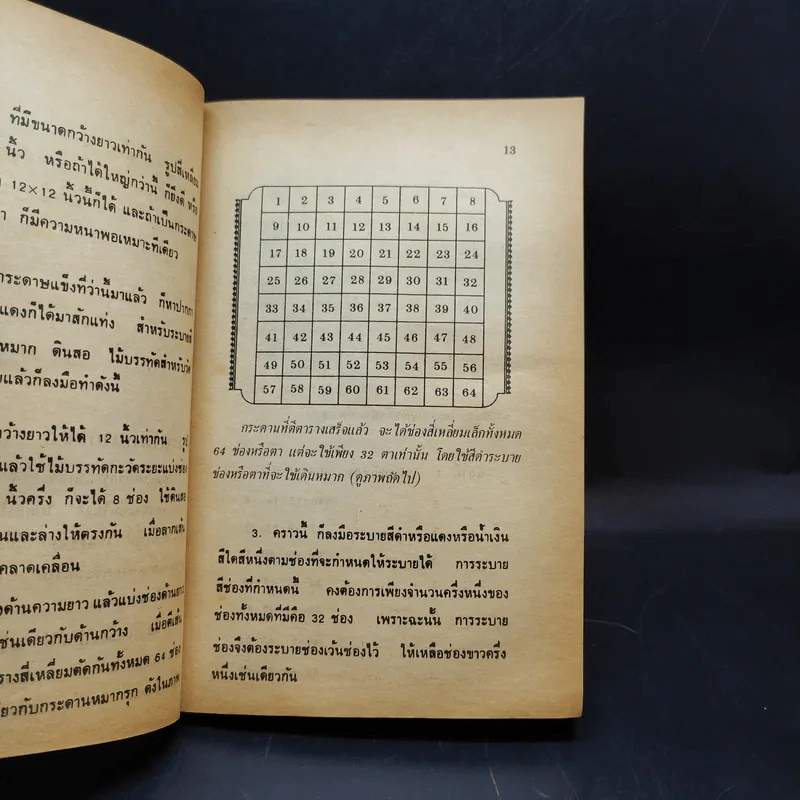 ที่มีขนาดกว้างยาวเท่ากัน รูปสี่เหลี่ยม
นิ้ว หรือถ้าได้ใหญ่กว่านี้ ก็ยิ่งดี หรือ
12×12 นิ้วนี้ก็ได้ และถ้าเป็นกระดาษ
ก็มีความหนาพอเหมาะทีเดียว
กระดาษแข็งที่ว่านี้มาแล้ว ก็หาปากกา
แดงก็ได้มาสักแท่ง สำหรับระบายสี
หมาก ดินสอ ไม้บรรทัดสำหรับวัด
แล้วก็ลงมือทำดังนี้
กว้างยาวให้ได้ 12 นิ้วเท่ากัน รูป
แล้วใช้ไม้บรรทัดกะวัดระยะแบ่งช่อง
นิ้วครึ่ง ก็จะได้ 8 ช่อง ใช้ดินสอ
และล่างให้ตรงกัน เมื่อลากเส้น
คลาดเคลื่อน
ด้านความยาว แล้วแบ่งช่องด้านยาว
เช่นเดียวกับด้านกว้าง เมื่อตีเส้น
สี่เหลี่ยมตัดกันทั้งหมด 64 ช่อง
กับกระดานหมากรุก ดังในภาพ
13
1 2 3 4 5 6 7 8
9 10 11 12 13 14 15 16
17 18 19 20 21 22 23 24
25 26 27 28 29 30 31 32
33 34 35 36 37 38 39 40
41 42 43 44 45 46 47 48
49 50 51 52 53 54 55 56
57 58 59 60 61 62 63 64
กระดานที่ตีตารางเสร็จแล้ว จะได้ช่องสี่เหลี่ยมเล็กทั้งหมด
64 ช่องหรือตา แต่จะใช้เพียง 32 ตาเท่านั้น โดยใช้สีดำระบาย
ช่องหรือตาที่จะใช้เดินหมาก (ดูภาพถัดไป)
3. คราวนี้ ก็ลงมือระบายสีดำหรือแดงหรือน้ำเงิน
สีใดสีหนึ่งตามช่องที่จะกำหนดให้ระบายได้ การระบาย
สีช่องที่กำหนดนี้ คงต้องการเพียงจำนวนครึ่งหนึ่งของ
ช่องทั้งหมดที่มีคือ 32 ช่อง เพราะฉะนั้น การระบาย
ช่องจึงต้องระบายช่องเว้นช่องไว้ ให้เหลือช่องขาวครึ่ง
หนึ่งเช่นเดียวกัน